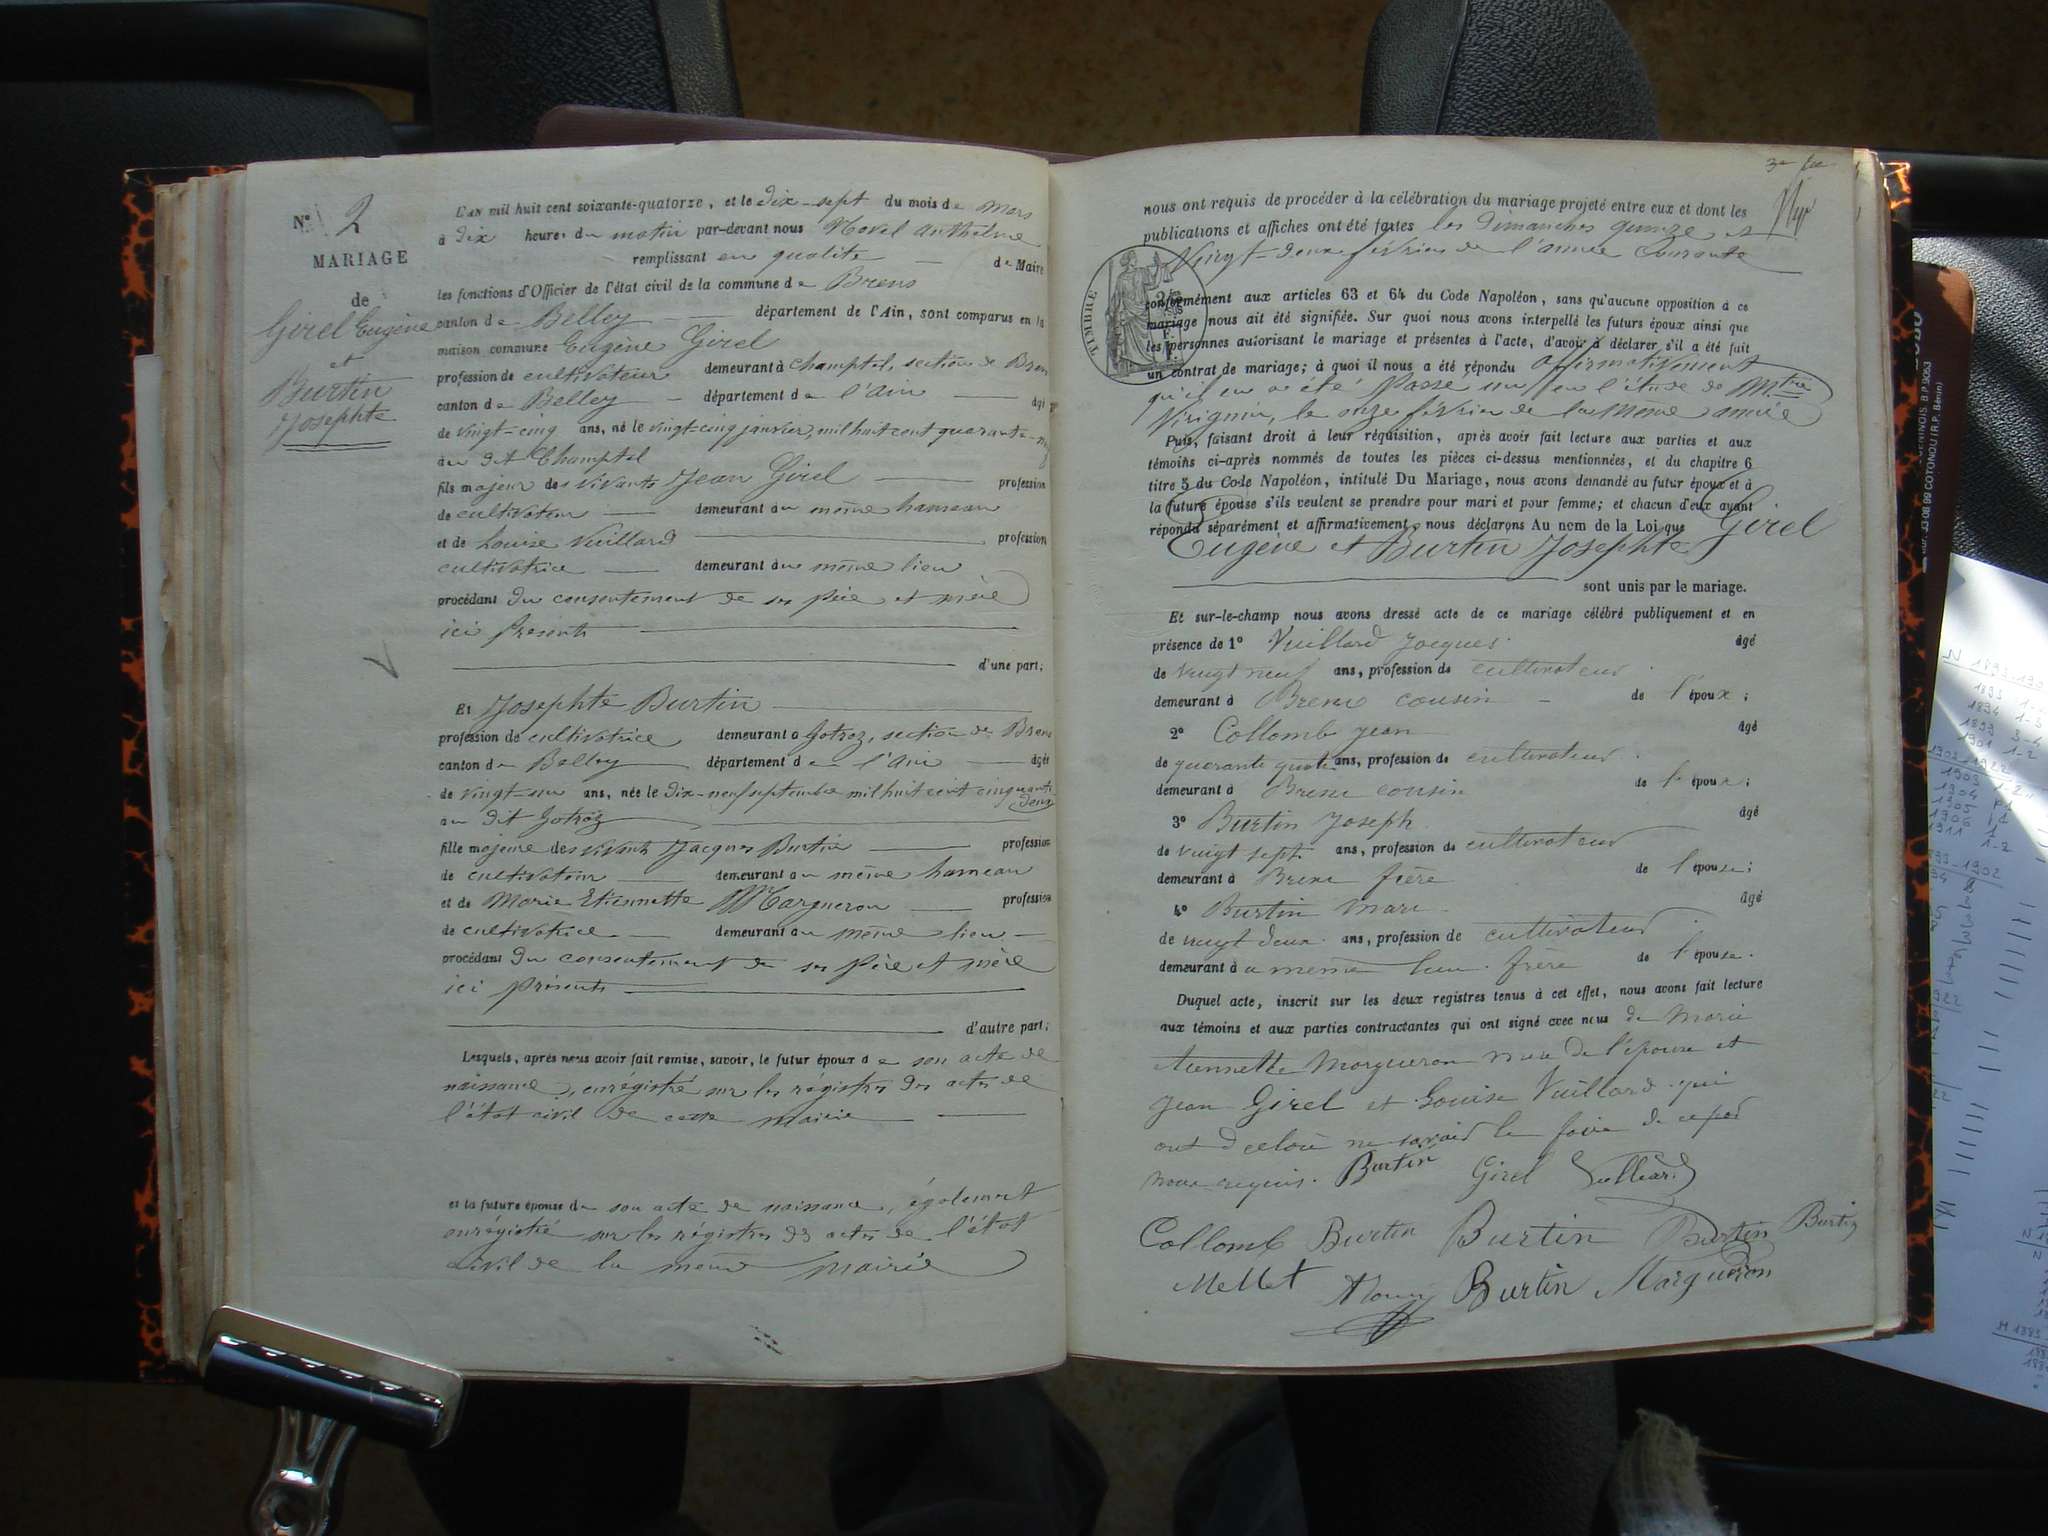 N° 2
MARIAGE
de
Girel Eugène
et
Burtin
Josephte
L'an mil huit cent soixante-quatorze, et le dix-sept du mois de mars
à dix heures du matin par-devant nous Anthelme
remplissant en qualité de Maire
les fonctions d'Officier de l'état civil de la commune de Brens
canton de Belley département de l'Ain, sont comparus en la
maison commune Eugène Girel
profession de cultivateur demeurant à Champtel, section de Brens
canton de Belley département de l'Ain âgé
de vingt-cinq ans, né le vingt-cinq janvier, mil huit cent quarante-
au dit Champtel
fils majeur des vivants Jean Girel profession
de cultivateur demeurant au même hameau
et de Louise Vuillard profession
cultivatrice demeurant au même lieu
procédant du consentement de ses père et mère
ici présents
d'une part;
Et Josephte Burtin
profession de cultivatrice demeurant à Gotroz, section de Brens
canton de Belley département de l'Ain âgée
de vingt-un ans, née le dix-neuf septembre mil huit cent cinquante
deux
au dit Gotroz
fille majeure des vivants Jacques Burtin profession
de cultivateur demeurant au même hameau
et de Marie Etiennette Margueron profession
de cultivatrice demeurant au même lieu
procédant du consentement de ses père et mère
ici présents
d'autre part;
Lesquels, après nous avoir fait remise, savoir, le futur époux de son acte de
naissance, enrégistré sur les régistres des actes de
l'état civil de cette mairie
et la future épouse de son acte de naissance, également
enrégistré sur les régistres des actes de l'état
civil de la même mairie
nous ont requis de procéder à la célébration du mariage projeté entre eux et dont les
publications et affiches ont été faites les dimanches quinze et
vingt-deux février de l'année courante
TIMBRE
conformément aux articles 63 et 64 du Code Napoléon, sans qu'aucune opposition à ce
mariage nous ait été signifiée. Sur quoi nous avons interpellé les futurs époux ainsi que
les personnes autorisant le mariage et présentes à l'acte, d'avoir à déclarer s'il a été fait
un contrat de mariage; à quoi il nous a été répondu affirmativement
qu'il en a été passé un en l'étude de Mtre
Virignin, le onze février de la même année
Puis, faisant droit à leur réquisition, après avoir fait lecture aux parties et aux
témoins ci-après nommés de toutes les pièces ci-dessus mentionnées, et du chapitre 6
titre 5 du Code Napoléon, intitulé Du Mariage, nous avons demandé au futur époux et à
la future épouse s'ils veulent se prendre pour mari et pour femme; et chacun d'eux ayant
répondu séparément et affirmativement, nous déclarons Au nom de la Loi que Girel
Eugène et Burtin Josephte
sont unis par le mariage.
Et sur-le-champ nous avons dressé acte de ce mariage célébré publiquement et en
présence de 1° Vuillard Jacques âgé
de vingt neuf ans, profession de cultivateur
demeurant à Brens cousin de l'époux;
2° Collomb Jean âgé
de quarante quatre ans, profession de cultivateur
demeurant à Brens cousin de l'époux;
3° Burtin Joseph âgé
de vingt sept ans, profession de cultivateur
demeurant à Brens frère de l'épouse;
4° Burtin Marc âgé
de vingt deux ans, profession de cultivateur
demeurant à même lieu frère de l'épouse.
Duquel acte, inscrit sur les deux registres tenus à cet effet, nous avons fait lecture
aux témoins et aux parties contractantes qui ont signé avec nous de Marie
tiennette Margueron mère de l'épouse et
Jean Girel et Louise Vuillard qui
ont déclaré ne savoir le faire de ce
requis. Burtin Girel Vuillard
Collomb Burtin Burtin Burtin Burtin
Mellet Burtin Margueron